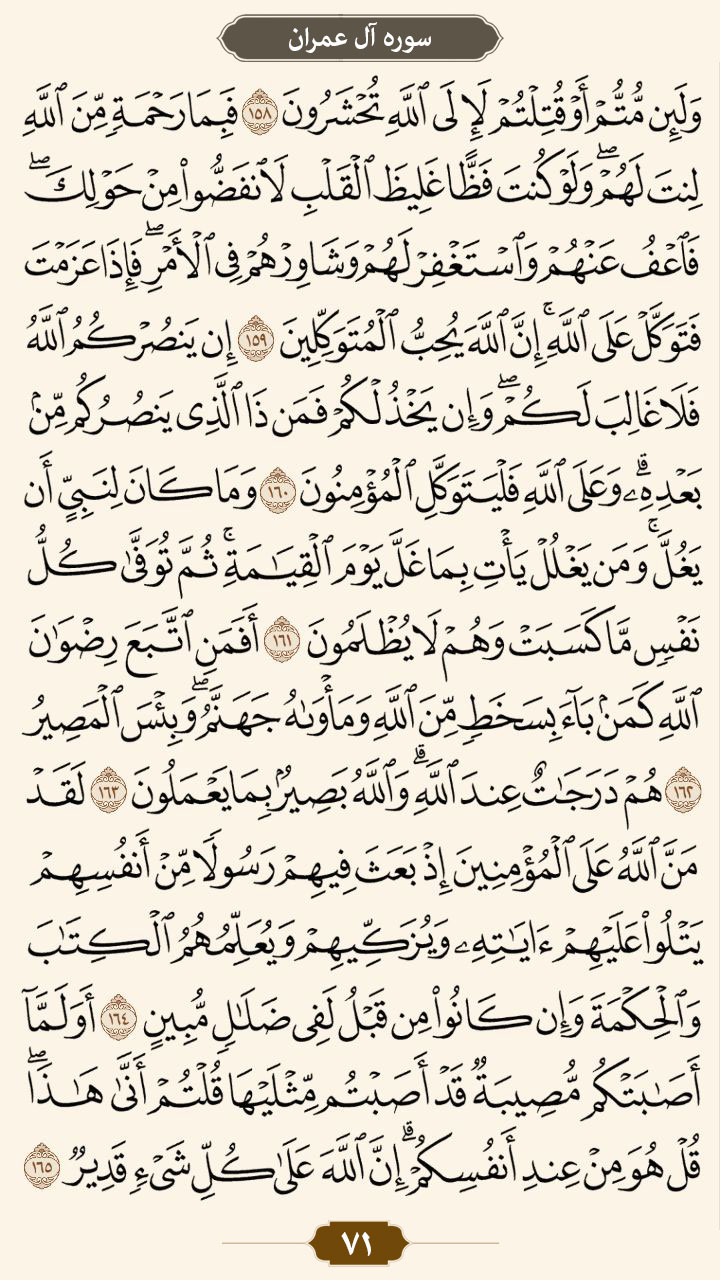 سوره آل عمران
وَلَئِن مُّتُّمْ أَوْ قُتِلْتُمْ لَإِلَى ٱللَّهِ تُحْشَرُونَ ١٥٨ فَبِمَا رَحْمَةٍ مِّنَ ٱللَّهِ
لِنتَ لَهُمْ ۖ وَلَوْ كُنتَ فَظًّا غَلِيظَ ٱلْقَلْبِ لَٱنفَضُّوا۟ مِنْ حَوْلِكَ ۖ
فَٱعْفُ عَنْهُمْ وَٱسْتَغْفِرْ لَهُمْ وَشَاوِرْهُمْ فِى ٱلْأَمْرِ ۖ فَإِذَا عَزَمْتَ
فَتَوَكَّلْ عَلَى ٱللَّهِ ۚ إِنَّ ٱللَّهَ يُحِبُّ ٱلْمُتَوَكِّلِينَ ١٥٩ إِن يَنصُرْكُمُ ٱللَّهُ
فَلَا غَالِبَ لَكُمْ ۖ وَإِن يَخْذُلْكُمْ فَمَن ذَا ٱلَّذِى يَنصُرُكُم مِّنۢ
بَعْدِهِۦ ۗ وَعَلَى ٱللَّهِ فَلْيَتَوَكَّلِ ٱلْمُؤْمِنُونَ ١٦٠ وَمَا كَانَ لِنَبِىٍّ أَن
يَغُلَّ ۚ وَمَن يَغْلُلْ يَأْتِ بِمَا غَلَّ يَوْمَ ٱلْقِيَـٰمَةِ ۚ ثُمَّ تُوَفَّىٰ كُلُّ
نَفْسٍ مَّا كَسَبَتْ وَهُمْ لَا يُظْلَمُونَ ١٦١ أَفَمَنِ ٱتَّبَعَ رِضْوَٰنَ
ٱللَّهِ كَمَنۢ بَآءَ بِسَخَطٍ مِّنَ ٱللَّهِ وَمَأْوَىٰهُ جَهَنَّمُ ۖ وَبِئْسَ ٱلْمَصِيرُ
١٦٢ هُمْ دَرَجَـٰتٌ عِندَ ٱللَّهِ ۗ وَٱللَّهُ بَصِيرٌۢ بِمَا يَعْمَلُونَ ١٦٣ لَقَدْ
مَنَّ ٱللَّهُ عَلَى ٱلْمُؤْمِنِينَ إِذْ بَعَثَ فِيهِمْ رَسُولًا مِّنْ أَنفُسِهِمْ
يَتْلُوا۟ عَلَيْهِمْ ءَايَـٰتِهِۦ وَيُزَكِّيهِمْ وَيُعَلِّمُهُمُ ٱلْكِتَـٰبَ
وَٱلْحِكْمَةَ وَإِن كَانُوا۟ مِن قَبْلُ لَفِى ضَلَـٰلٍ مُّبِينٍ ١٦٤ أَوَلَمَّآ
أَصَـٰبَتْكُم مُّصِيبَةٌ قَدْ أَصَبْتُم مِّثْلَيْهَا قُلْتُمْ أَنَّىٰ هَـٰذَا ۖ
قُلْ هُوَ مِنْ عِندِ أَنفُسِكُمْ ۗ إِنَّ ٱللَّهَ عَلَىٰ كُلِّ شَىْءٍ قَدِيرٌ ١٦٥
٧١